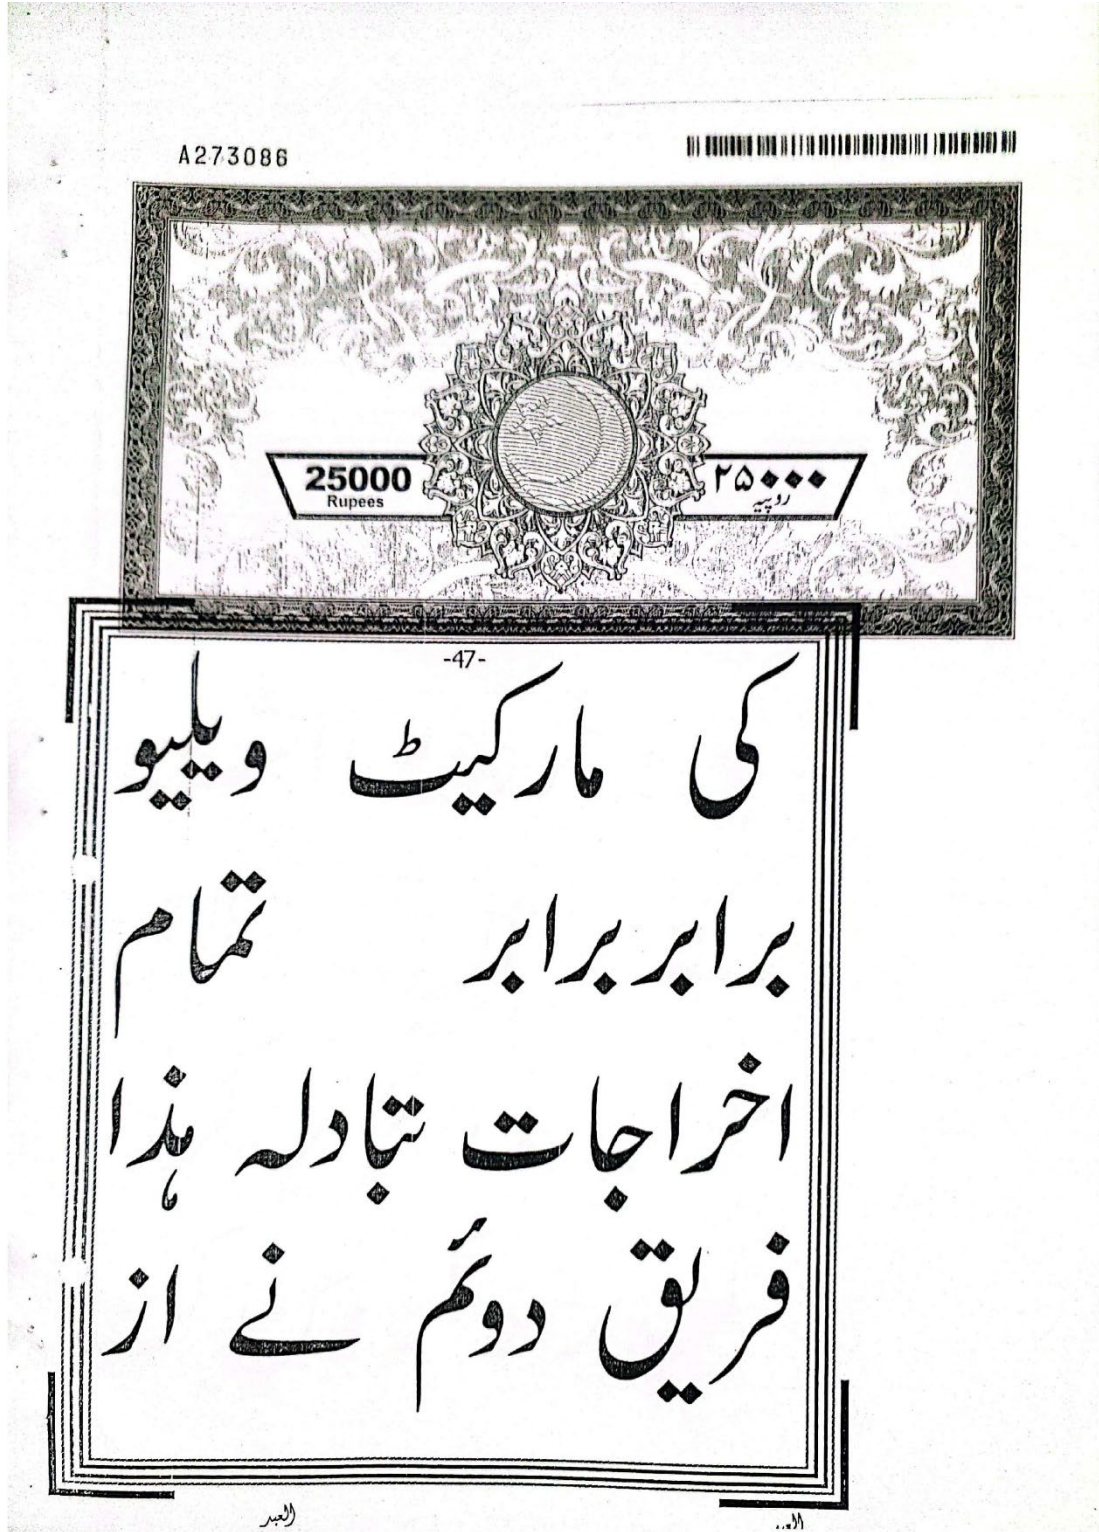 A273086
25000
Rupees
۲۵۰۰۰
روپیہ
-47-
کی مارکیٹ ویلیو
برابر برابر تمام
اخراجات تبادلہ ہذا
فریق دوئم نے از
العبد
العبد